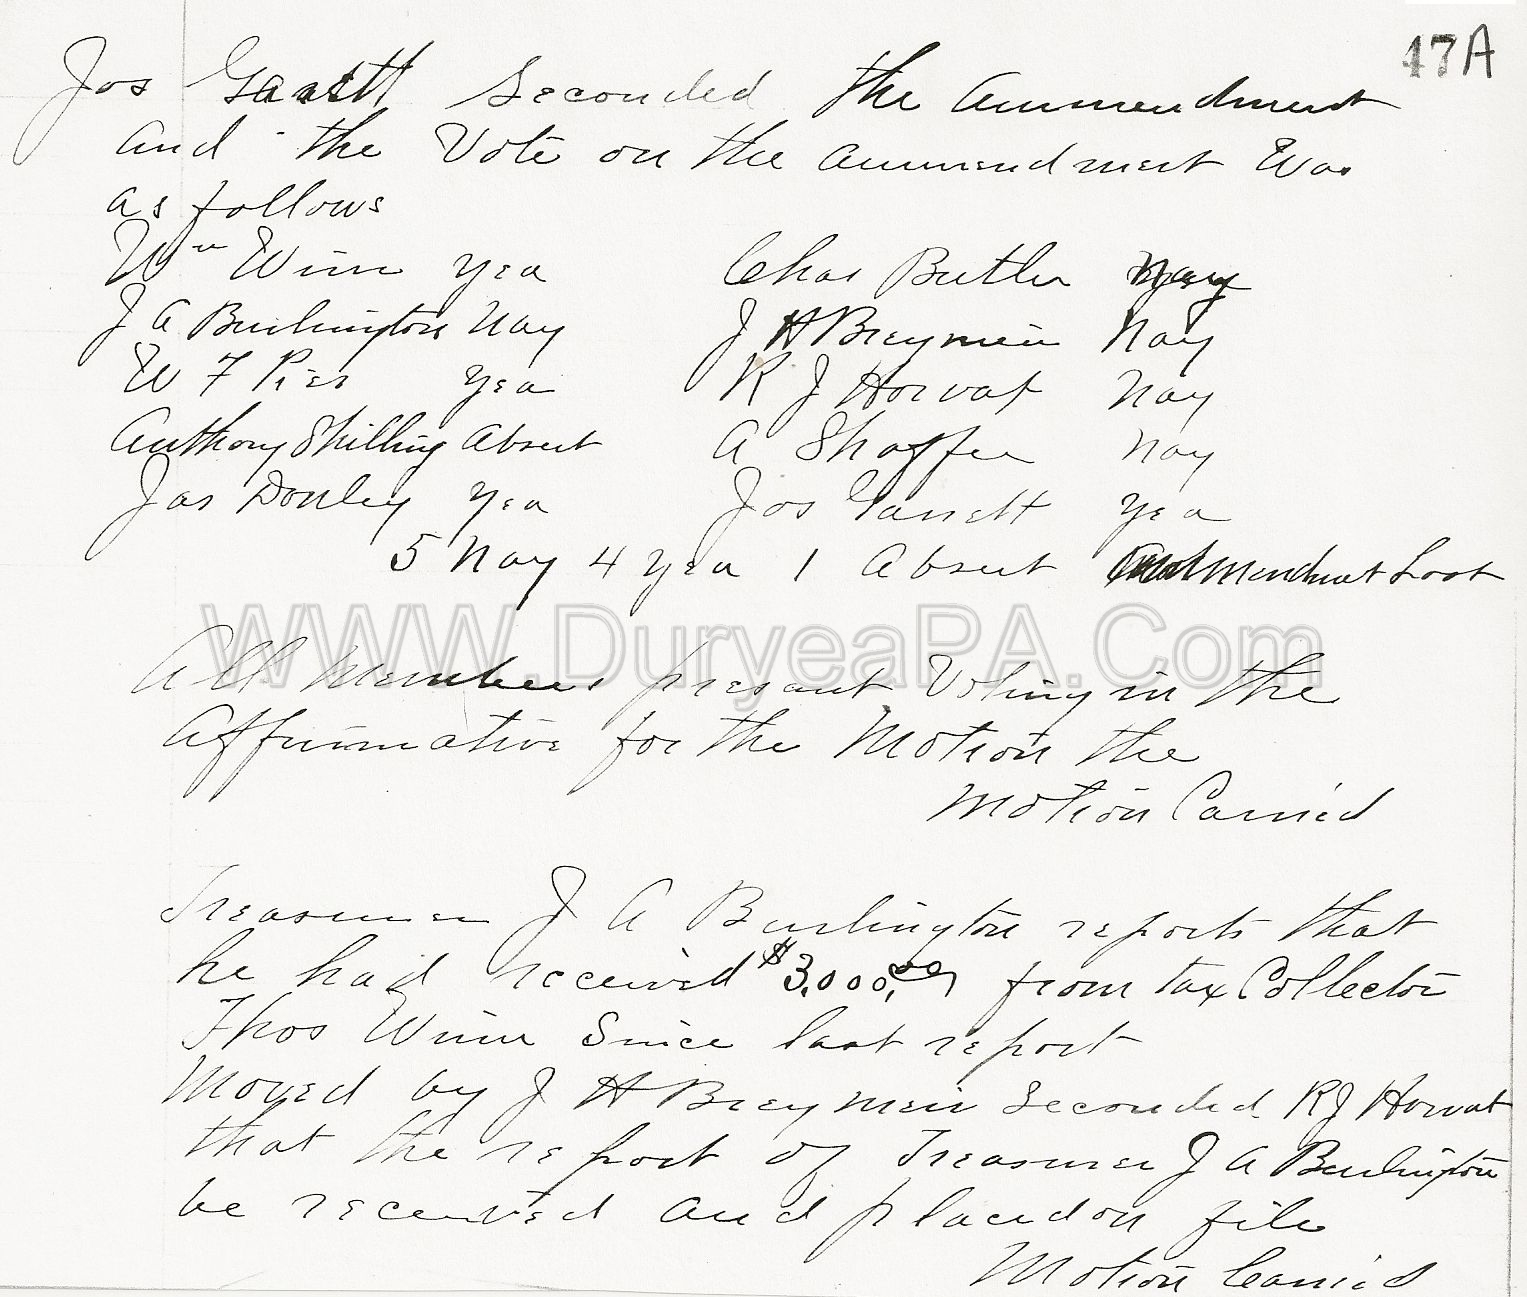 47A
Jos Garrett Seconded the Ammendment
and the Vote on the Ammendment Was
as follows
Wm Winn yea Chas Butler Nay
J A Burlington Nay J H Breymeir Nay
W F Pier yea R J Horvat Nay
Anthony Shilling Absent A Shaffer Nay
Jas Donley yea Jos Garrett yea
5 Nay 4 yea 1 Absent Ammendment Lost
WWW.DuryeaPA.Com
All Members present Voting in the
Affirmative for the Motion the
Motion Carried
Treasurer J A Burlington reports that
he had received $3,000,00 from tax Collector
Thos Winn Since last report
Moved by J H Breymeir Seconded R J Horvat
that the report of Treasurer J A Burlington
be received and placed on file
Motion Carried